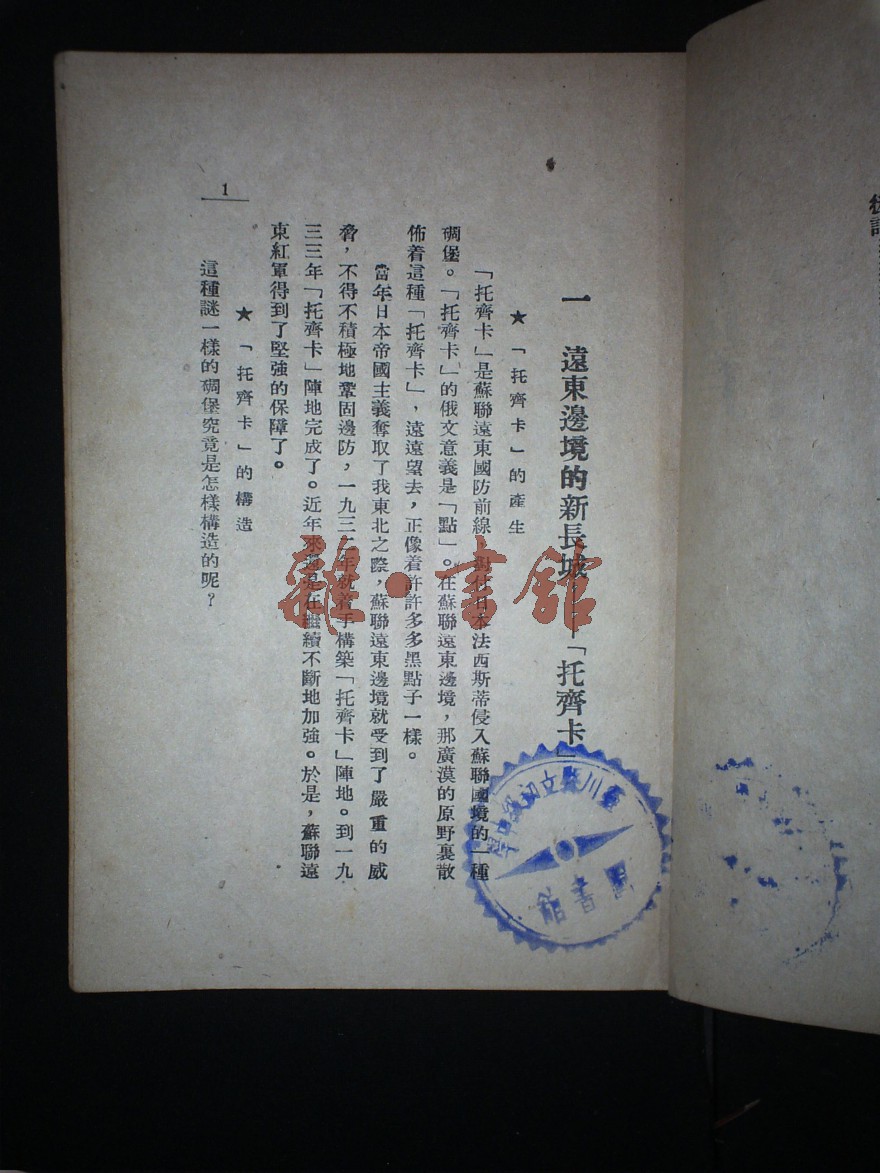 一　遠東邊境的新長城——「托齊卡」
★　「托齊卡」的產生
「托齊卡」是蘇聯遠東國防前線，對付日本法西斯蒂侵入蘇聯國境的一種
碉堡。「托齊卡」的俄文意義是「點」。在蘇聯遠東邊境，那廣漠的原野裏散
佈着這種「托齊卡」，遠遠望去，正像着許許多多黑點子一樣。
當年日本帝國主義奪取了我東北之際，蘇聯遠東邊境就受到了嚴重的威
脅，不得不積極地鞏固邊防，一九三二年就着手構築「托齊卡」陣地。到一九
三三年「托齊卡」陣地完成了。近年來還是在繼續不斷地加強。於是，蘇聯遠
東紅軍得到了堅強的保障了。
★　「托齊卡」的構造
這種謎一樣的碉堡究竟是怎樣構造的呢？
1
雜·書館
川縣立初級中學
圖書館
後記